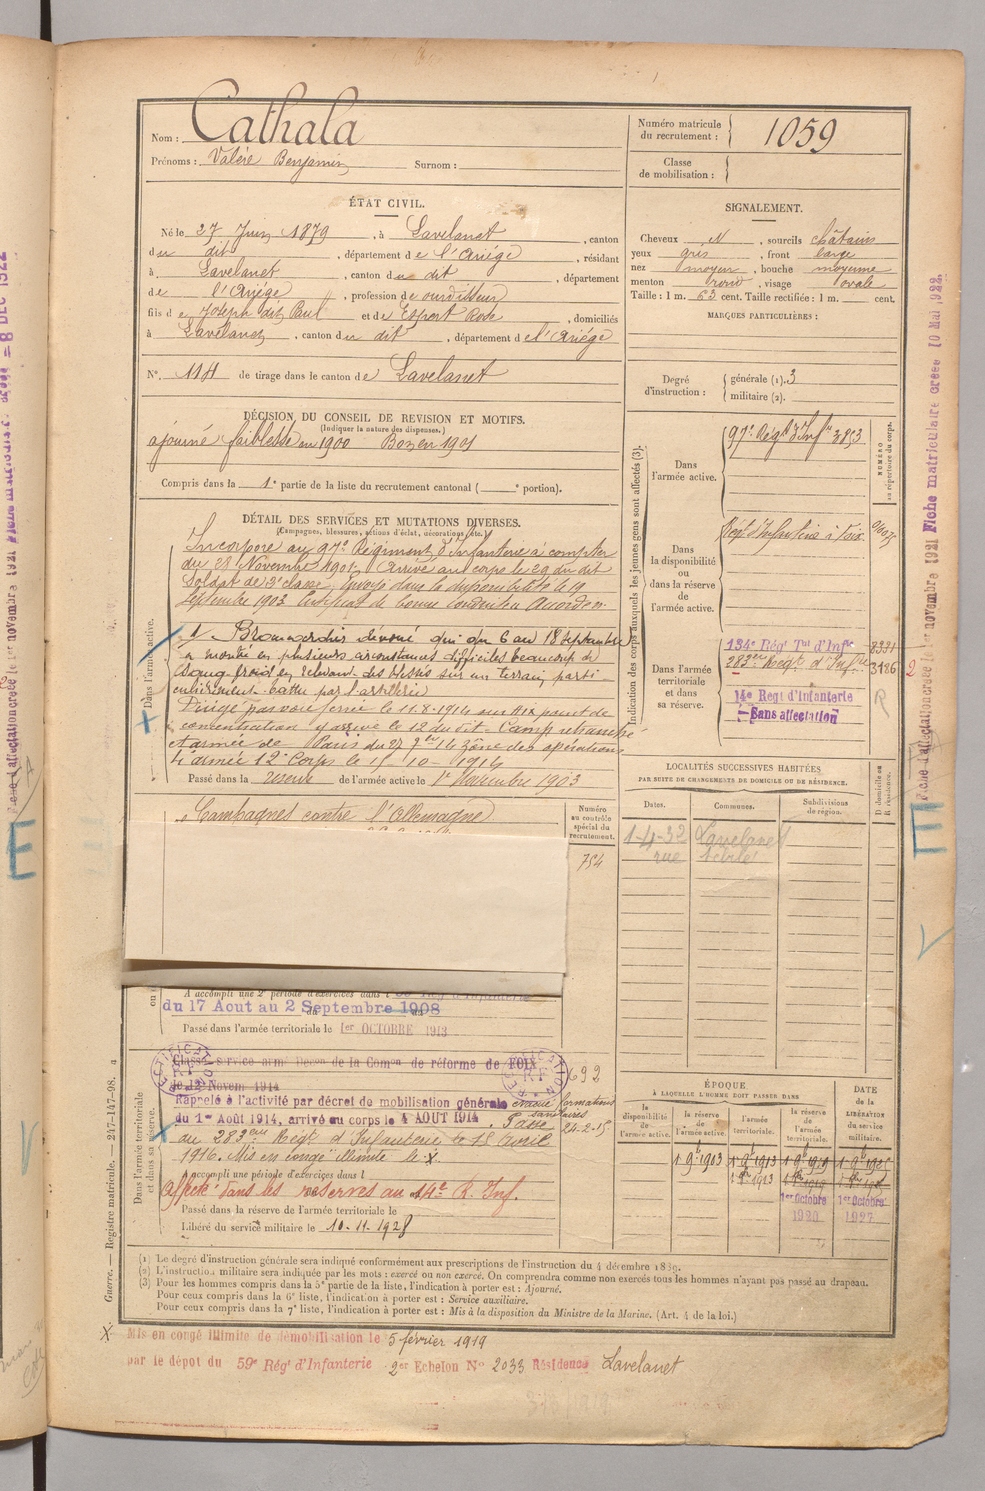 Nom : Cathala
Prénoms : Valère Benjamin Surnom :
Numéro matricule du recrutement : 1059
Classe de mobilisation :
ÉTAT CIVIL.
Né le 27 Juin 1879, à Lavelanet, canton
du dit, département de l'Ariège, résidant
à Lavelanet, canton du dit, département
de l'Ariège, profession de ourdisseur
fils de Joseph dit Paul et de Espert Rose, domiciliés
à Lavelanet, canton du dit, département de l'Ariège
N° 114 de tirage dans le canton de Lavelanet
SIGNALEMENT.
Cheveux N, sourcils châtains
yeux gris, front large
nez moyen, bouche moyenne
menton rond, visage ovale
Taille : 1 m. 63 cent. Taille rectifiée : 1 m. cent.
MARQUES PARTICULIÈRES :
Degré d'instruction : générale (1). 3
militaire (2).
DÉCISION DU CONSEIL DE REVISION ET MOTIFS.
(Indiquer la nature des dispenses.)
ajourné faiblesse en 1900 Bon en 1901
Compris dans la 1e partie de la liste du recrutement cantonal ( e portion).
DÉTAIL DES SERVICES ET MUTATIONS DIVERSES.
(Campagnes, blessures, actions d'éclat, décorations, etc.)
Dans l'armée active.
Incorporé au 97e Régiment d'Infanterie à compter
du 28 Novembre 1901. Arrivé au corps le 29 du dit
Soldat de 2e classe. Envoyé dans la disponibilité le 19
Septembre 1903. Certificat de bonne Conduite Accordé.
Brancardier dévoué qui du 6 au 18 Septembre
a montré en plusieurs circonstances difficiles beaucoup de
sang froid en relevant des blessés sur un terrain parti-
culièrement battu par l'artillerie
Dirigé par voie ferrée le 11.8.1914 sur Aix point de
concentration y arrive le 12 du dit. Camp retranché
et armée de Paris du 27 7bre 14 zône des opérations
armée 12e Corps le 15-10-1914
Passé dans la réserve de l'armée active le 1er Novembre 1903
Campagnes contre l'Allemagne
Numéro au contrôle spécial du recrutement.
754
Indication des corps auxquels les jeunes gens sont affectés (3).
NUMÉRO au répertoire du corps.
Dans l'armée active.
97e Régt d'Infie 3853
Dans la disponibilité ou dans la réserve de l'armée active.
Régt d'Infanterie à Foix
Dans l'armée territoriale et dans sa réserve.
134e Régt Tal d'Infie 3331
283e Régt d'Infie 3186
14e Regt d'Infanterie
Sans affectation
R
LOCALITÉS SUCCESSIVES HABITÉES
PAR SUITE DE CHANGEMENTS DE DOMICILE OU DE RÉSIDENCE.
Dates. Communes. Subdivisions de région. D. domicile ou R. résidence.
1-4-32 Lavelanet
rue
A accompli une 2e période d'exercices dans l
du 17 Aout au 2 Septembre 1908
Passé dans l'armée territoriale le 1er OCTOBRE 1913
Dans l'armée territoriale et dans sa réserve.
RECTIFICATION
RECTIFICATION
Classé service armé Décon de la Comon de réforme de FOIX
le 12 Novem 1914
692
Rappelé à l'activité par décret de mobilisation générale
du 1er Août 1914, arrivé au corps le 4 AOUT 1914. Passé
formations sanitaires
24-2-15
au 283eme Régt d'Infanterie le 15 Avril
1916. Mis en congé illimité le X
A accompli une période d'exercices dans l
Affecté dans les réserves au 14e R. Inf.
Passé dans la réserve de l'armée territoriale le
Libéré du service militaire le 10-11-1928
ÉPOQUE
À LAQUELLE L'HOMME DOIT PASSER DANS
la disponibilité de l'armée active. la réserve de l'armée active. l'armée territoriale. la réserve de l'armée territoriale.
DATE DE LA LIBÉRATION du service militaire.
1 9bre 1903 1 9bre 1913 1 9bre 1919 1 9bre 1925
1er Octobre 1920 1er Octobre 1927
(1) Le degré d'instruction générale sera indiqué conformément aux prescriptions de l'instruction du 4 décembre 1889.
(2) L'instruction militaire sera indiquée par les mots : exercé ou non exercé. On comprendra comme non exercés tous les hommes n'ayant pas passé au drapeau.
(3) Pour les hommes compris dans la 5e partie de la liste, l'indication à porter est : Ajourné.
Pour ceux compris dans la 6e liste, l'indication à porter est : Service auxiliaire.
Pour ceux compris dans la 7e liste, l'indication à porter est : Mis à la disposition du Ministre de la Marine. (Art. 4 de la loi.)
Guerre. — Registre matricule. — 247-147-98.
X Mis en congé illimité de démobilisation le 5 février 1919
par le dépot du 59e Régt d'Infanterie 2er Echelon N° 2033 Résidence Lavelanet
Fiche d'affectation créée le 1er novembre 1921 Fiche matriculaire créée 10 Mai 1922